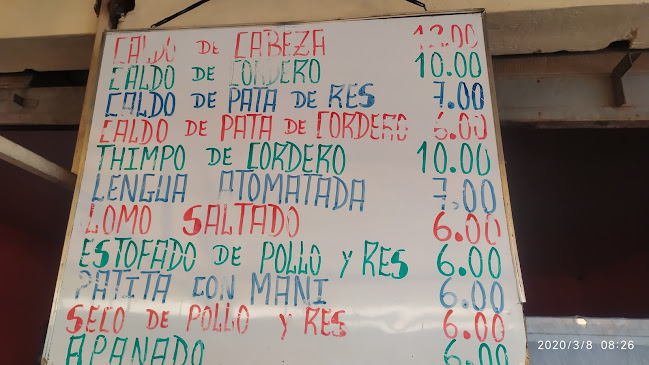 CALDO DE CABEZA 12.00
CALDO DE CORDERO 10.00
CALDO DE PATA DE RES 7.00
CALDO DE PATA DE CORDERO 6.00
THIMPO DE CORDERO 10.00
LENGUA ATOMATADA 7,00
LOMO SALTADO 6.00
ESTOFADO DE POLLO Y RES 6.00
PATITA CON MANI 6.00
SECO DE POLLO Y RES 6.00
APANADO 6.00
2020/3/8 08:26